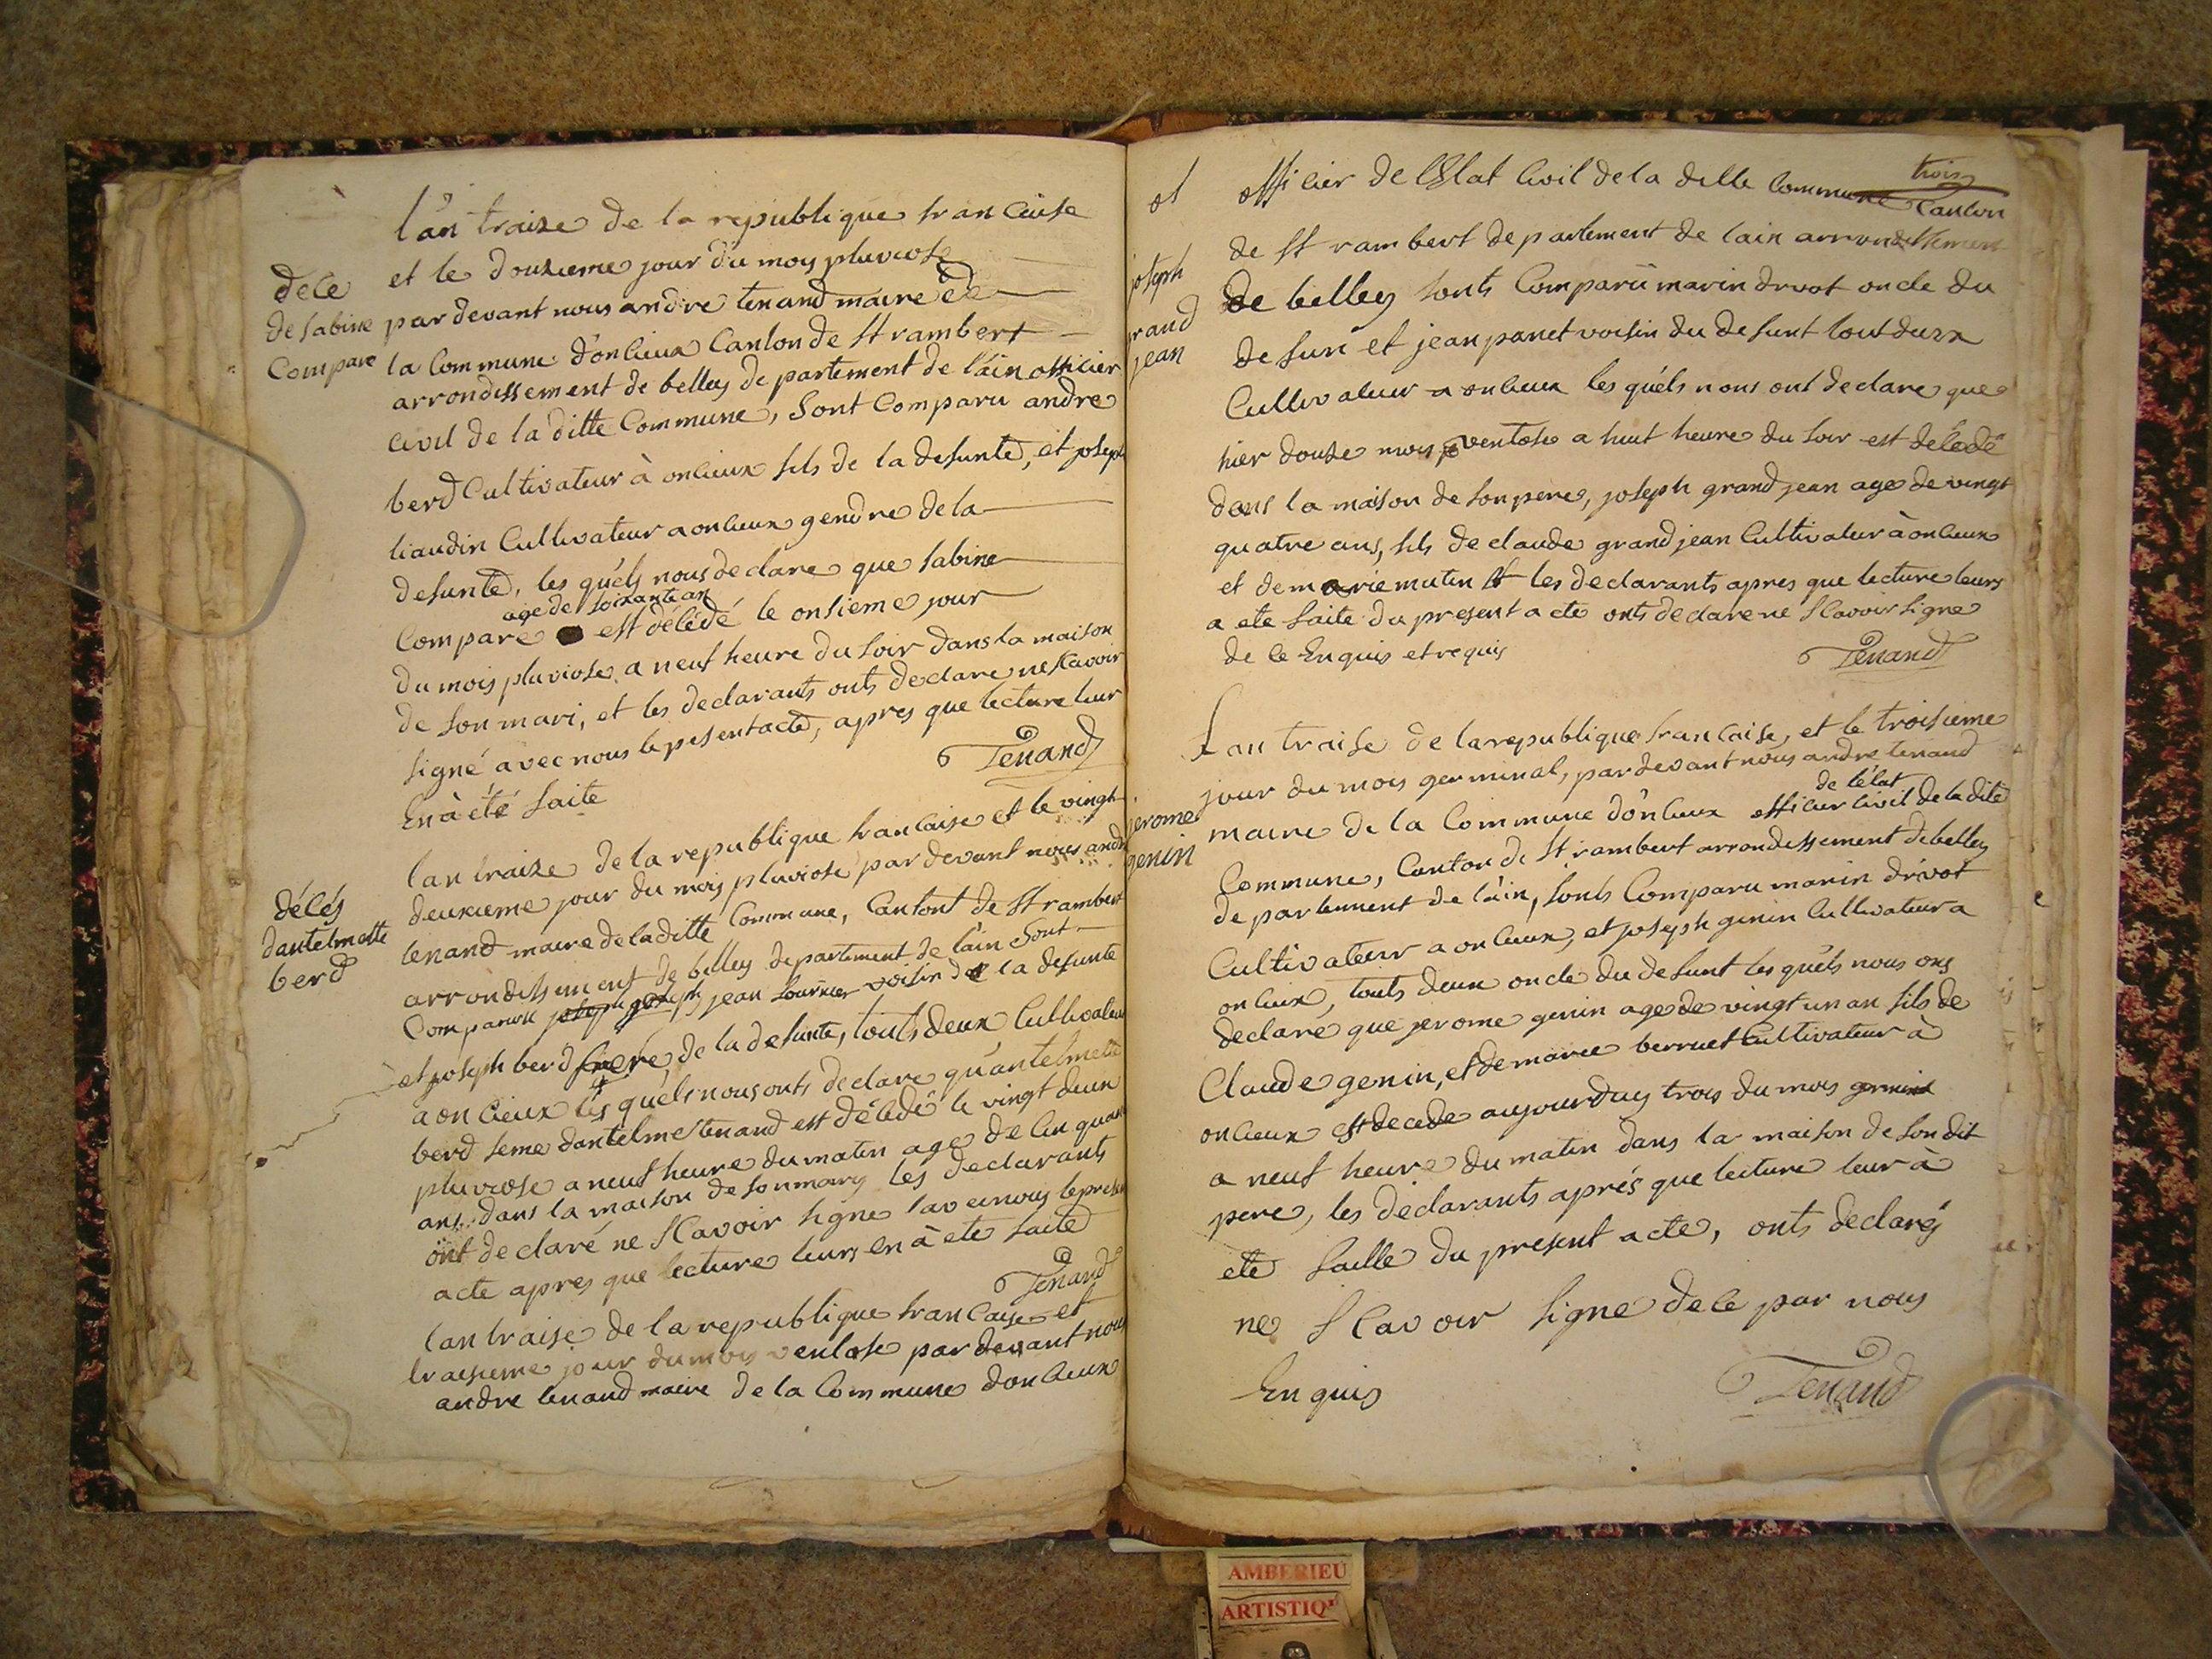 l'an traize de la republique francaise
et le douzieme jour du mois pluviose
pardevant nous andre tenand maire de
la Commune d'oncieux Canton de St rambert
arrondissement de belley departement de l'ain officier
civil de la ditte Commune, Sont Comparu andre
berd Cultivateur à oncieux fils de la defunte, et joseph
liaudin Cultivateur a oncieux gendre de la
defunte, les quels nous declare que sabine
age de soixante an
Compare est décédé le onsieme jour
du mois pluviose a neuf heure du soir dans la maison
de son mari, et les declarants onts declare ne scavoir
signé avec nous le pesent acte, apres que lecture leur
En à été faite
Tenand
dece
de sabine
Compare
l'an traize de la republique francaise et le vingt
deuxieme jour du mois pluviose par devant nous andre
tenand maire de la ditte Commune, Cantont de St rambert
arrondissement de belley departement de l'ain Sont
Comparux joseph joseph jean fournier voisin de la defunte
et joseph berd frere de la defunte, touts deux Cultivateur
a oncieux les quels nous onts declare qu'antelmette
berd feme dantelme tenand est décédé le vingt deux
pluviose a neuf heure du matin age de cinquante
ans dans la maison de son mary les declarants
ont declaré ne scavoir signe lavecnous le present
acte apres que lecture leurs en à ete faite
Tenand
décés
dantelmette
berd
l'an traise de la republique francaise et
traisieme jour du mois ventose par devant nous
andre tenand maire de la Commune d'oncieux
officier de l'Etat Civil de la ditte Commune Canton
trois
de St rambert departement de lain arrondissement
de belley sonts Comparu marin drvot oncle du
defun et jean panet voisin du defunt tout deux
Cultivateur a oncieux les quels nous ont declare que
hier douse mois ventose a huit heure du soir est décédé
dans la maison de son pere, joseph grand jean age de vingt
quatre ans, fils de claude grand jean Cultivateur à oncieux
et de marie mutin les declarants apres que lecture leurs
a ete faite du present acte onts declare ne scavoir signe
de ce Enquis et requis
Tenand
joseph
grand
jean
L an traise de la republique francaise, et le troisieme
jour du mois germinal, pardevant nous andre tenand
maire de la Commune d'oncieux officier civil de la dite
de l'état
Commune, Canton de St rambert arrondissement de belley
departement de l'ain, sonts Comparu marin drivot
Cultivateur a oncieux, et joseph genin Cultivateur a
oncieux, touts deux oncle du defunt les quels nous ons
declare que jerome genin age de vingt un an fils de
Claude genin, et de marie berruet Cultivateur à
oncieux est decede aujourduy trois du mois germinal
a neuf heure du matin dans la maison de son dit
pere, les declarants aprés que lecture leur à
ete faitte du present acte, onts declarés
ne scavoir signe de ce par nous
Enquis
Tenand
jerome
genin
AMBERIEU
ARTISTIQ